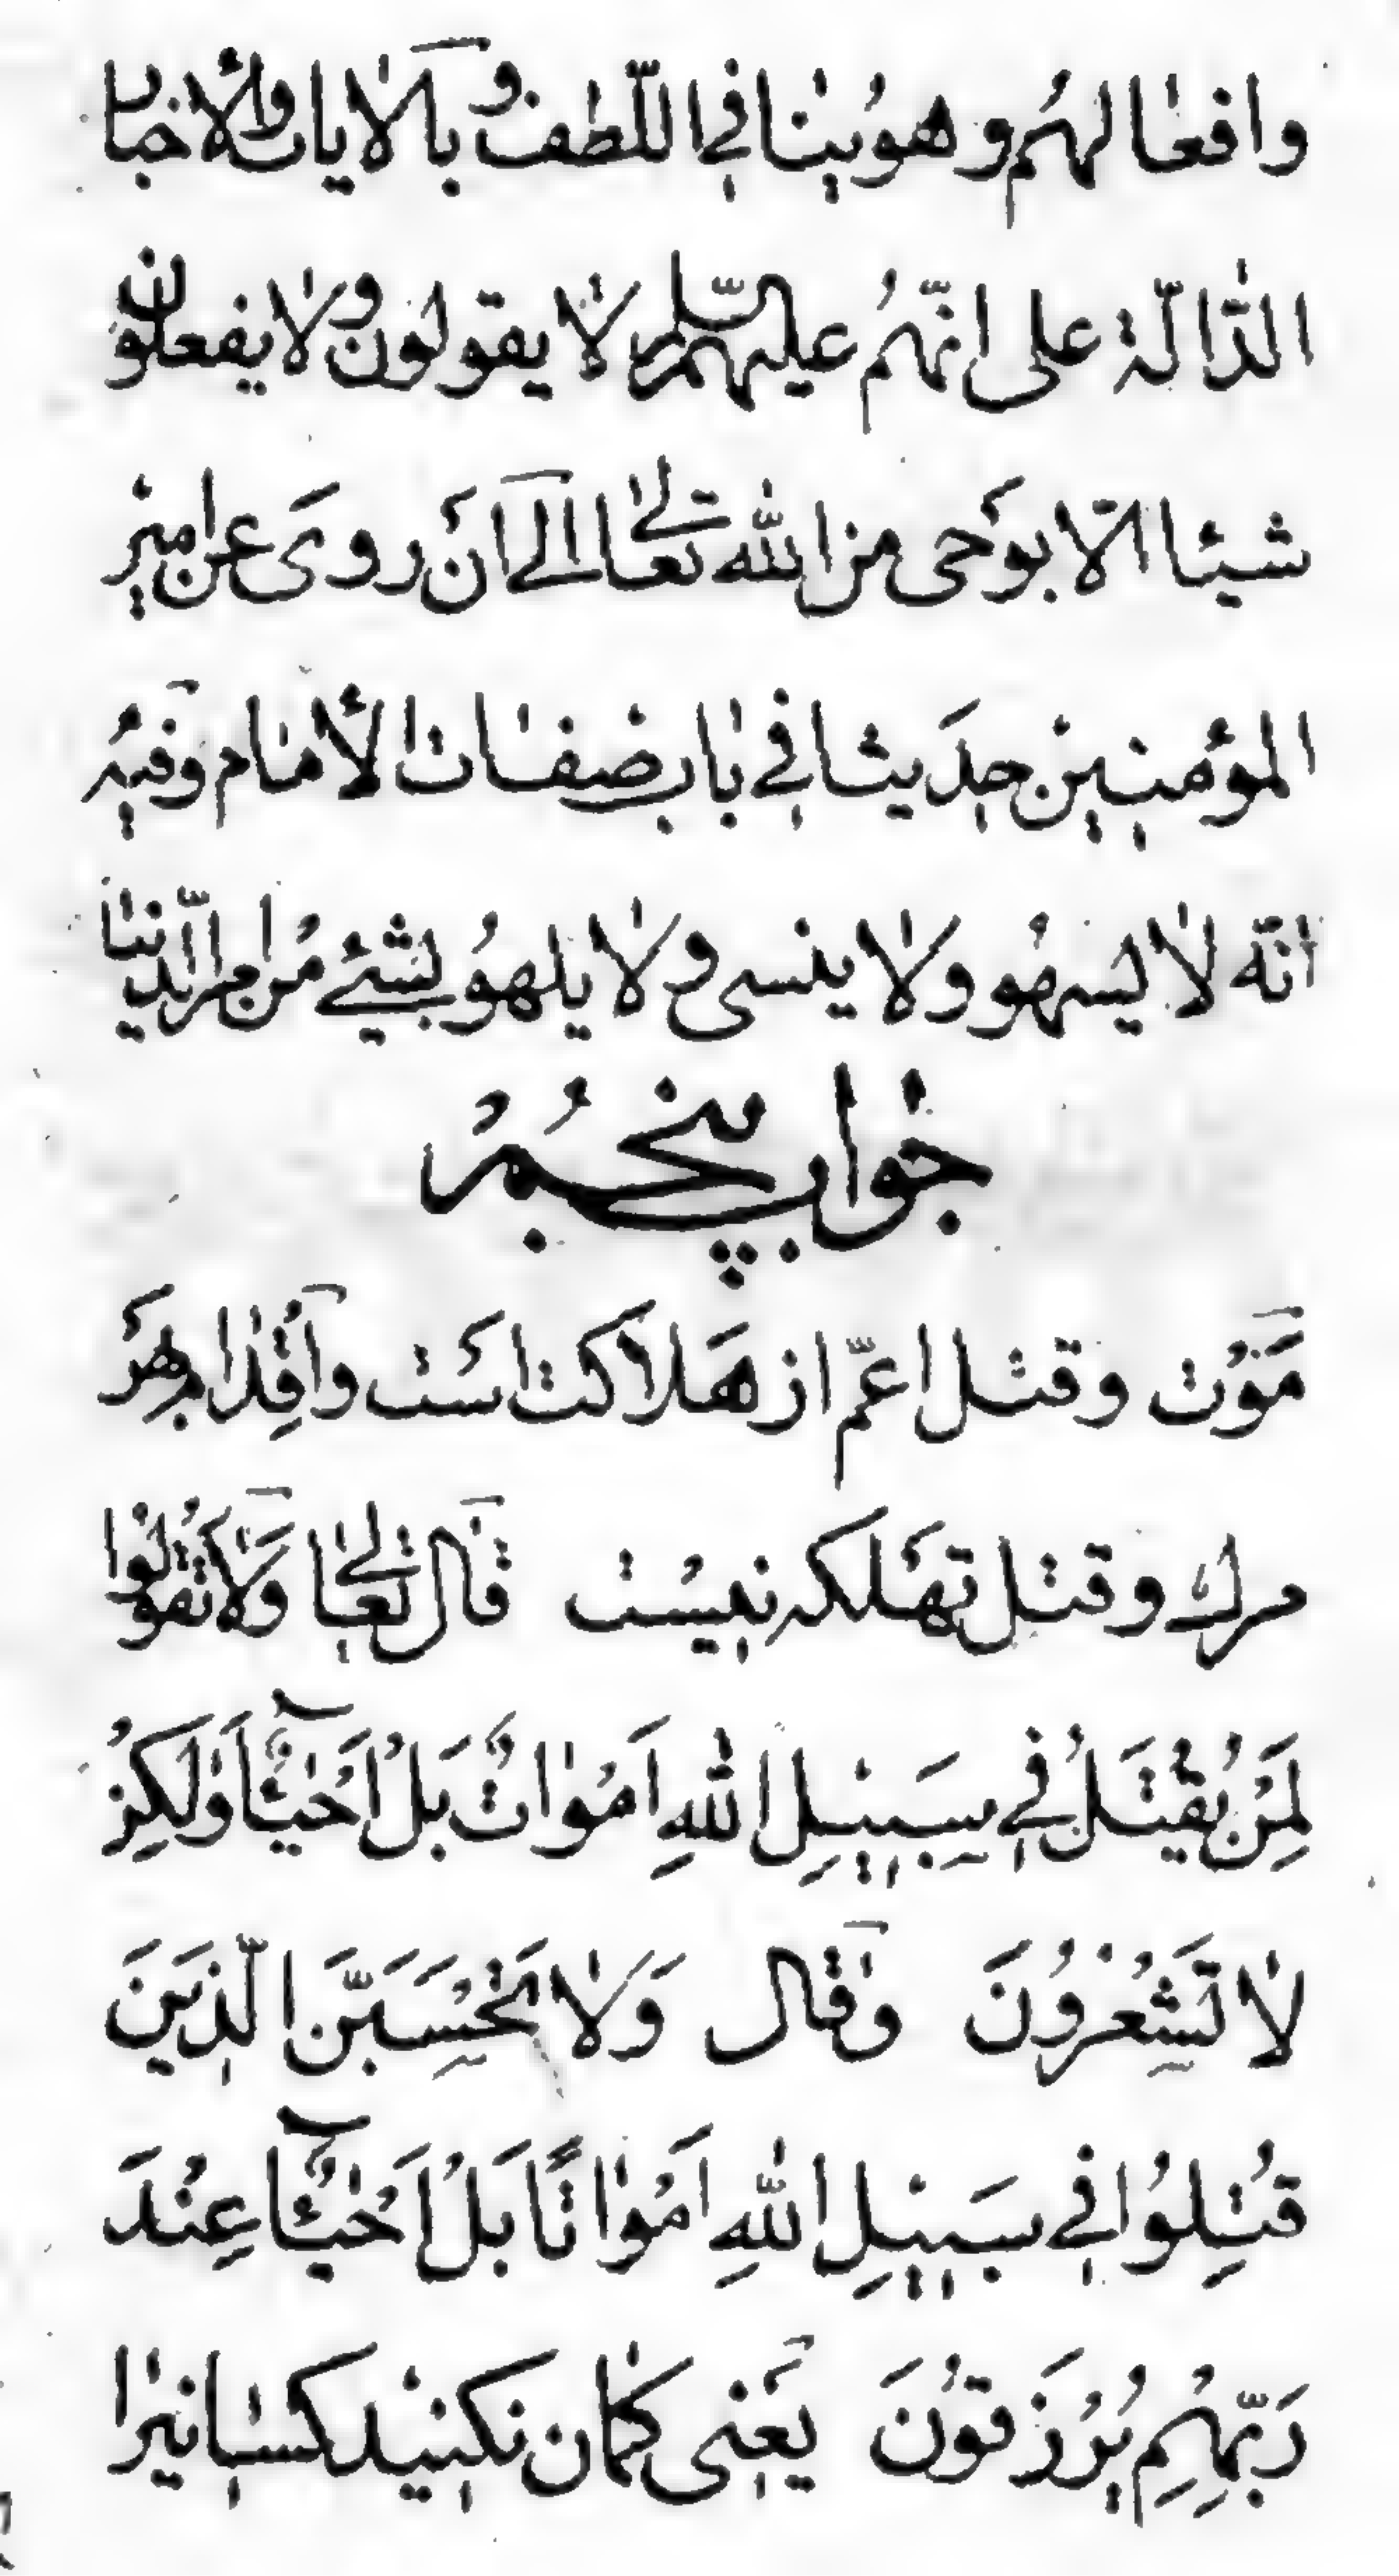 وافعالهم و هو ینافی اللّطف و بالایات والأخبار
الدّالّة علی انّهم علیهم السّلام لا یقولون ولا یفعلون
شیئا الّا بوحی من الله تعالی الی ان روی عن امیر
المؤمنین حدیثا فی باب صفات الأمام وفیه
انّه لا یسهو ولا ینسی ولا یلهو بشیئ من امر الدّنیا
جواب پنجم
مَوْت وقتل اعمّ از هَلاکت اسَت واَقْدام بهَر
مرك وقتل تهَلکه نیست قال تعالی وَلا تَقُولُوا
لِمَنْ یُقْتَلُ فی سَبیلِ اللهِ اَمْواتٌ بَلْ اَحْیٰآءٌ وَلٰکِنْ
لا تَشْعُرُونَ وقال وَلا تَحْسَبَنَّ الَّذینَ
قُتِلُوا فی سَبیلِ اللهِ اَمْواتًا بَلْ اَحْیٰآءٌ عِنْدَ
رَبِّهِمْ یُرْزَقُونَ یَعنی کمان نکنید کسانیرا